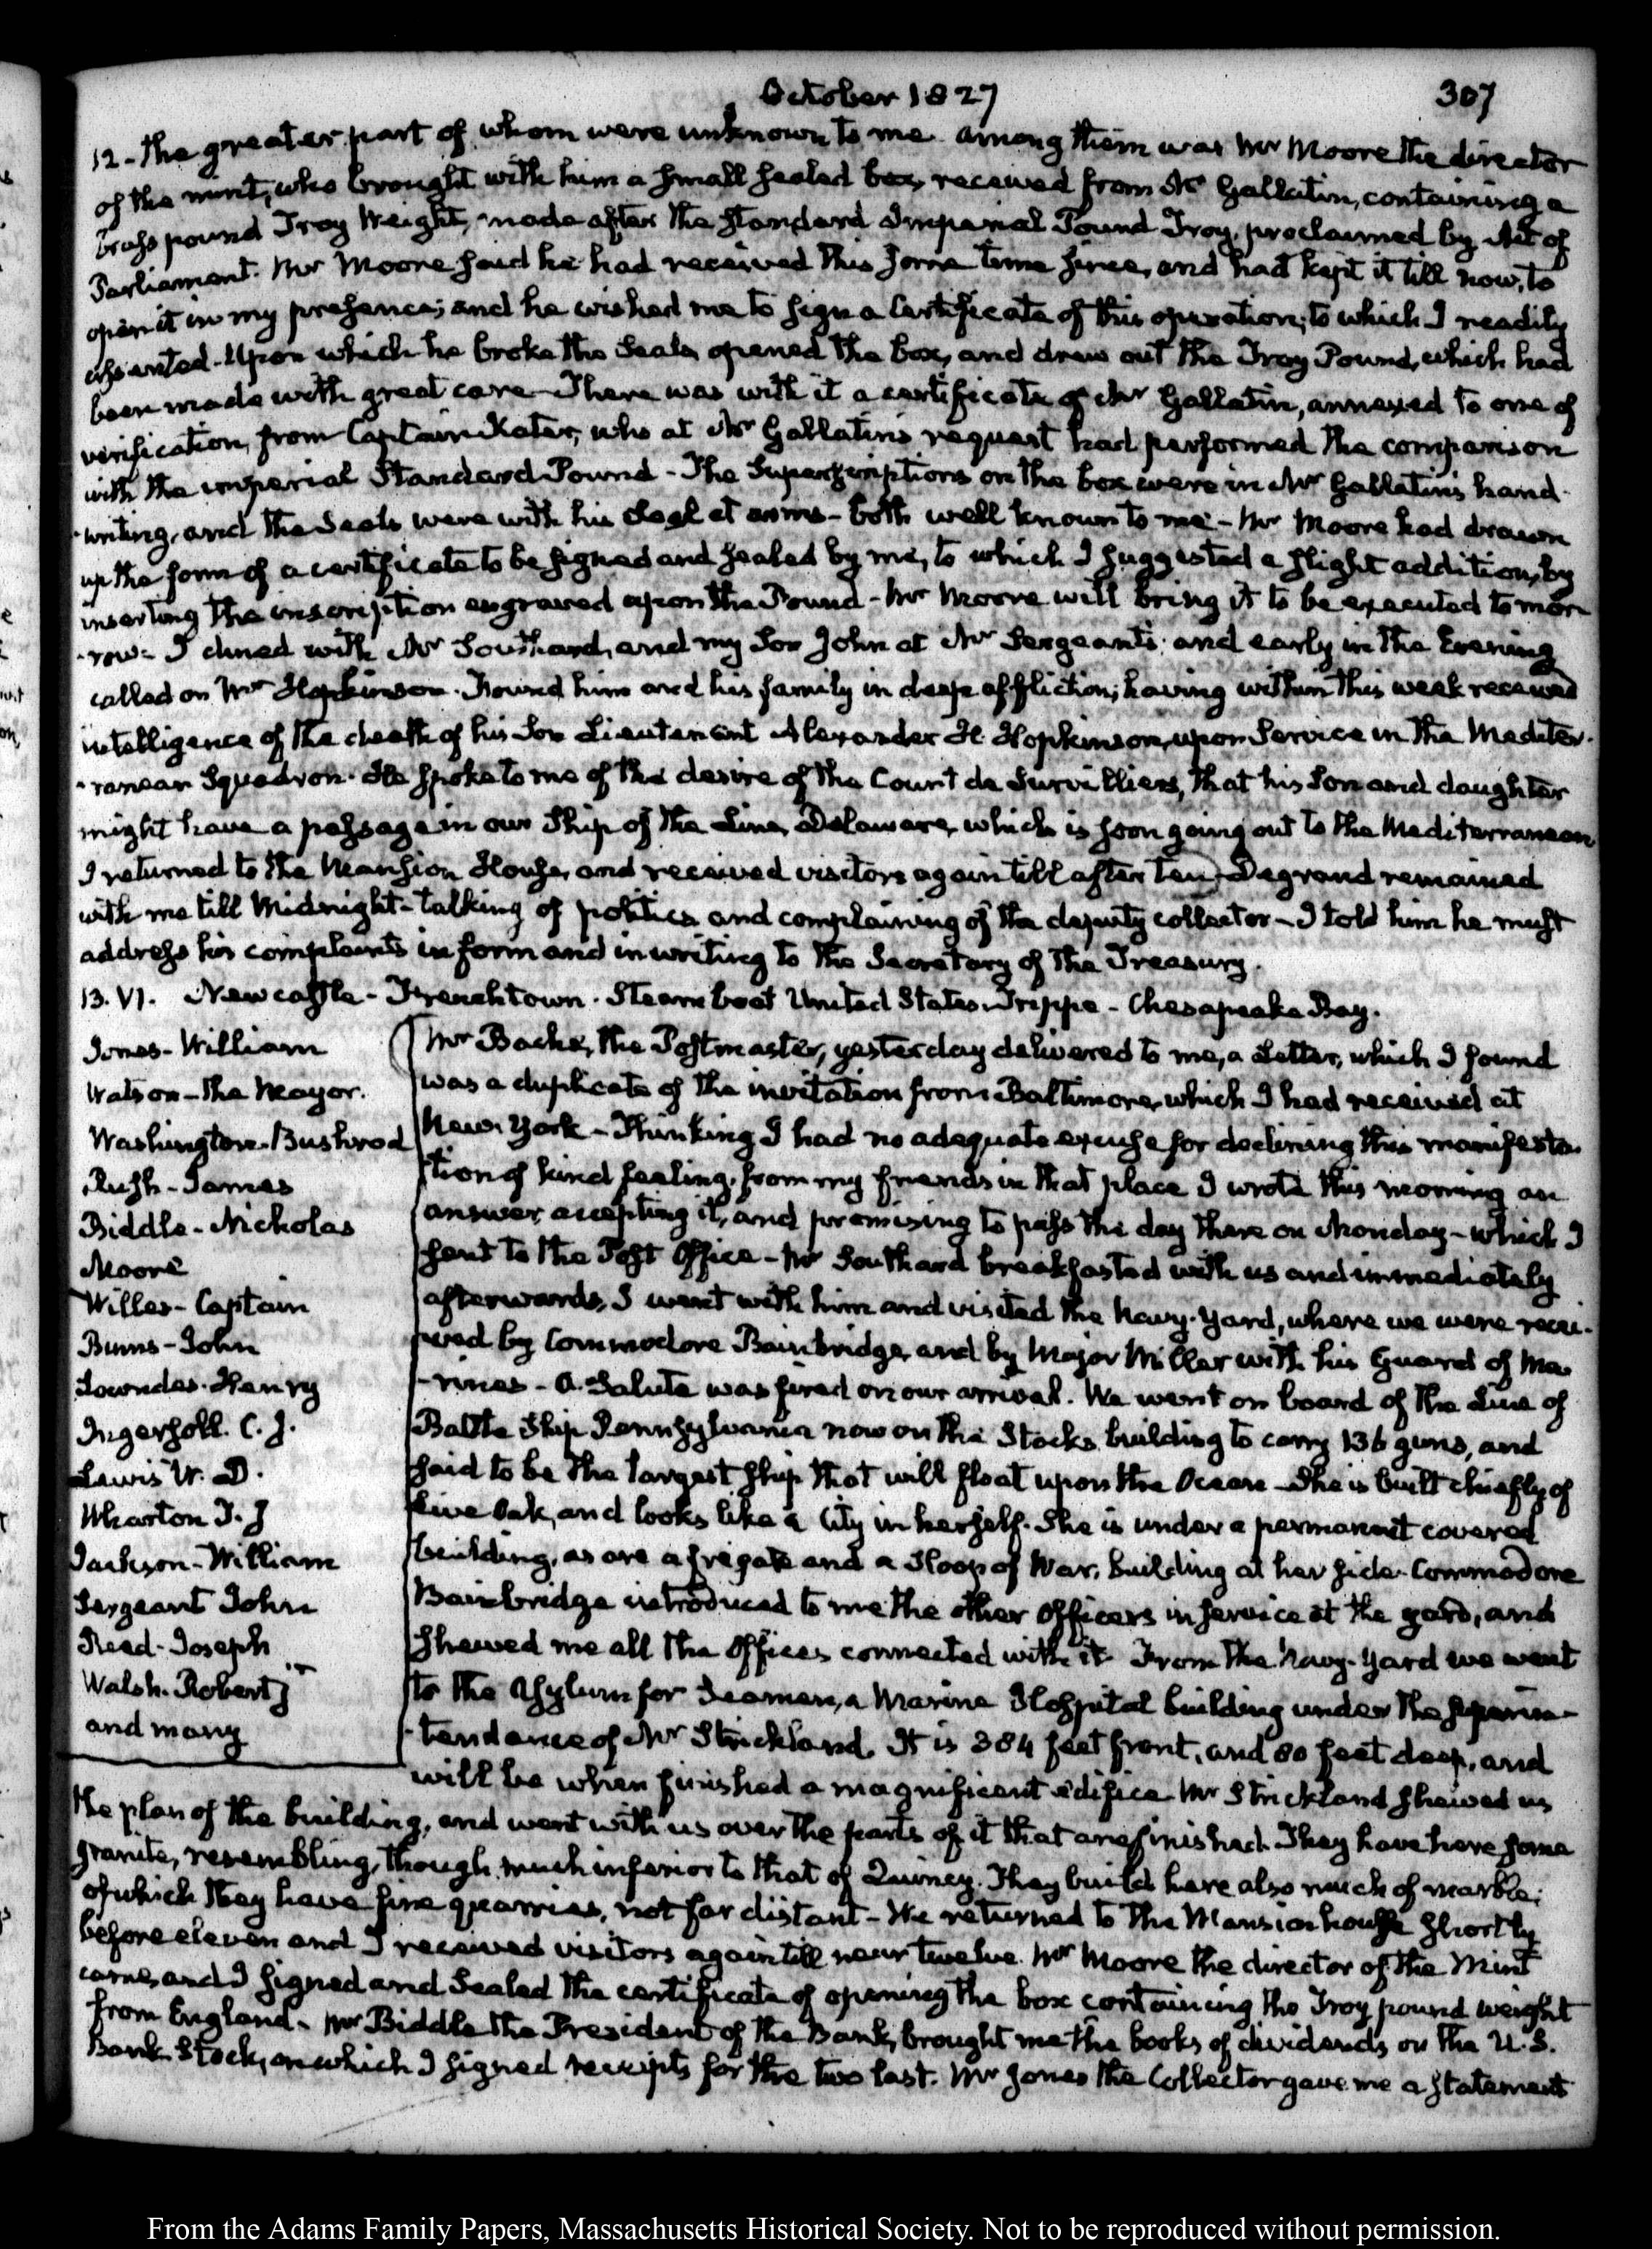 October 1827
307
12 - the greater part of whom were unknown to me. among them was Mr Moore the director
of the mint, who brought with him a small sealed box, received from Mr Gallatin, containing a
brass pound Troy Weight, made after the standard Imperial Pound Troy, proclaimed by Act of
Parliament. Mr Moore said he had received this some time since, and had kept it till now, to
open it in my presence; and he wished me to sign a Certificate of this operation; to which I readily
assented - Upon which he broke the Seals, opened the box, and drew out the Troy Pound, which had
been made with great care - There was with it a certificate of Mr Gallatin, annexed to one of
verification, from Captain Kater, who at Mr Gallatin's request had performed the comparison
with the imperial Standard Pound - The Superscriptions on the box were in Mr Gallatin's hand-
-writing, and the Seals were with his coat of arms - both well known to me - Mr Moore had drawn
up the form of a certificate to be signed and sealed by me, to which I suggested a slight addition, by
inserting the inscription engraved upon the Pound - Mr Moore will bring it to be executed to mor-
-row - I dined with Mr Southard, and my Son John at Mr Sergeant's; and early in the Evening
called on Mr Hopkinson. Found him and his family in deep affliction; having within this week received
intelligence of the death of his Son Lieutenant Alexander H. Hopkinson, upon Service in the Mediter-
-ranean Squadron. He spoke to me of the desire of the Count de Survilliers, that his Son and daughter
might have a passage in our Ship of the Line, Delaware, which is soon going out to the Mediterranean.
I returned to the Mansion House, and received visitors again till after ten. Degrand remained
with me till Midnight - talking of politics and complaining of the deputy collector - I told him he must
address his complaints in form and in writing to the Secretary of the Treasury.
13. VI. Newcastle - Frenchtown. Steam boat United States. Trippe - Chesapeake Bay.
Jones - William
Watson - the Mayor.
Washington - Bushrod
Rush - James
Biddle - Nicholas
Moore
Willes - Captain
Burns - John
Lowndes. Henry
Ingersoll. C. J.
Lewis W. D.
Wharton T. J
Jackson - William
Sergeant John
Read - Joseph
Walsh. Robert jr
and many
Mr Bache, the Postmaster, yesterday delivered to me, a Letter, which I found
was a duplicate of the invitation from Baltimore, which I had received at
New-York - Thinking I had no adequate excuse for declining this manifesta-
tion of kind feeling, from my friends in that place I wrote this morning an
answer, accepting it, and promising to pass the day there on Monday - which I
sent to the Post Office - Mr Southard breakfasted with us and immediately
afterwards, I went with him and visited the Navy-Yard, where we were recei-
-ved by Commodore Bainbridge, and by Major Miller with his Guard of Ma-
-rines - A Salute was fired on our arrival. We went on board of the Line of
Battle Ship Pennsylvania now on the Stocks, building to carry 136 guns, and
said to be the largest ship that will float upon the Ocean - She is built chiefly of
Live Oak, and looks like a City in herself. She is under a permanent covered
building, as are a frigate and a Sloop of War, building at her side. Commodore
Bainbridge introduced to me the other Officers in service at the yard, and
shewed me all the Offices connected with it. From the Navy-Yard we went
to the Asylum for Seamen, a Marine Hospital building under the superin-
-tendance of Mr Strickland. It is 384 feet front, and 80 feet deep, and
will be when finished a magnificent edifice. Mr Strickland shewed us
the plan of the building, and went with us over the parts of it that are finished. They have here some
granite, resembling, though much inferior to that of Quincy. They build here also much of marble;
of which they have fine quarries, not far distant - We returned to the Mansion house shortly
before eleven and I received visitors again till near twelve. Mr Moore the director of the Mint
came, and I signed and Sealed the certificate of opening the box containing the Troy pound weight
from England. Mr Biddle the President of the Bank, brought me the books of dividends on the U.S.
Bank Stock, on which I signed receipts for the two last. Mr Jones the Collector gave me a statement
From the Adams Family Papers, Massachusetts Historical Society. Not to be reproduced without permission.